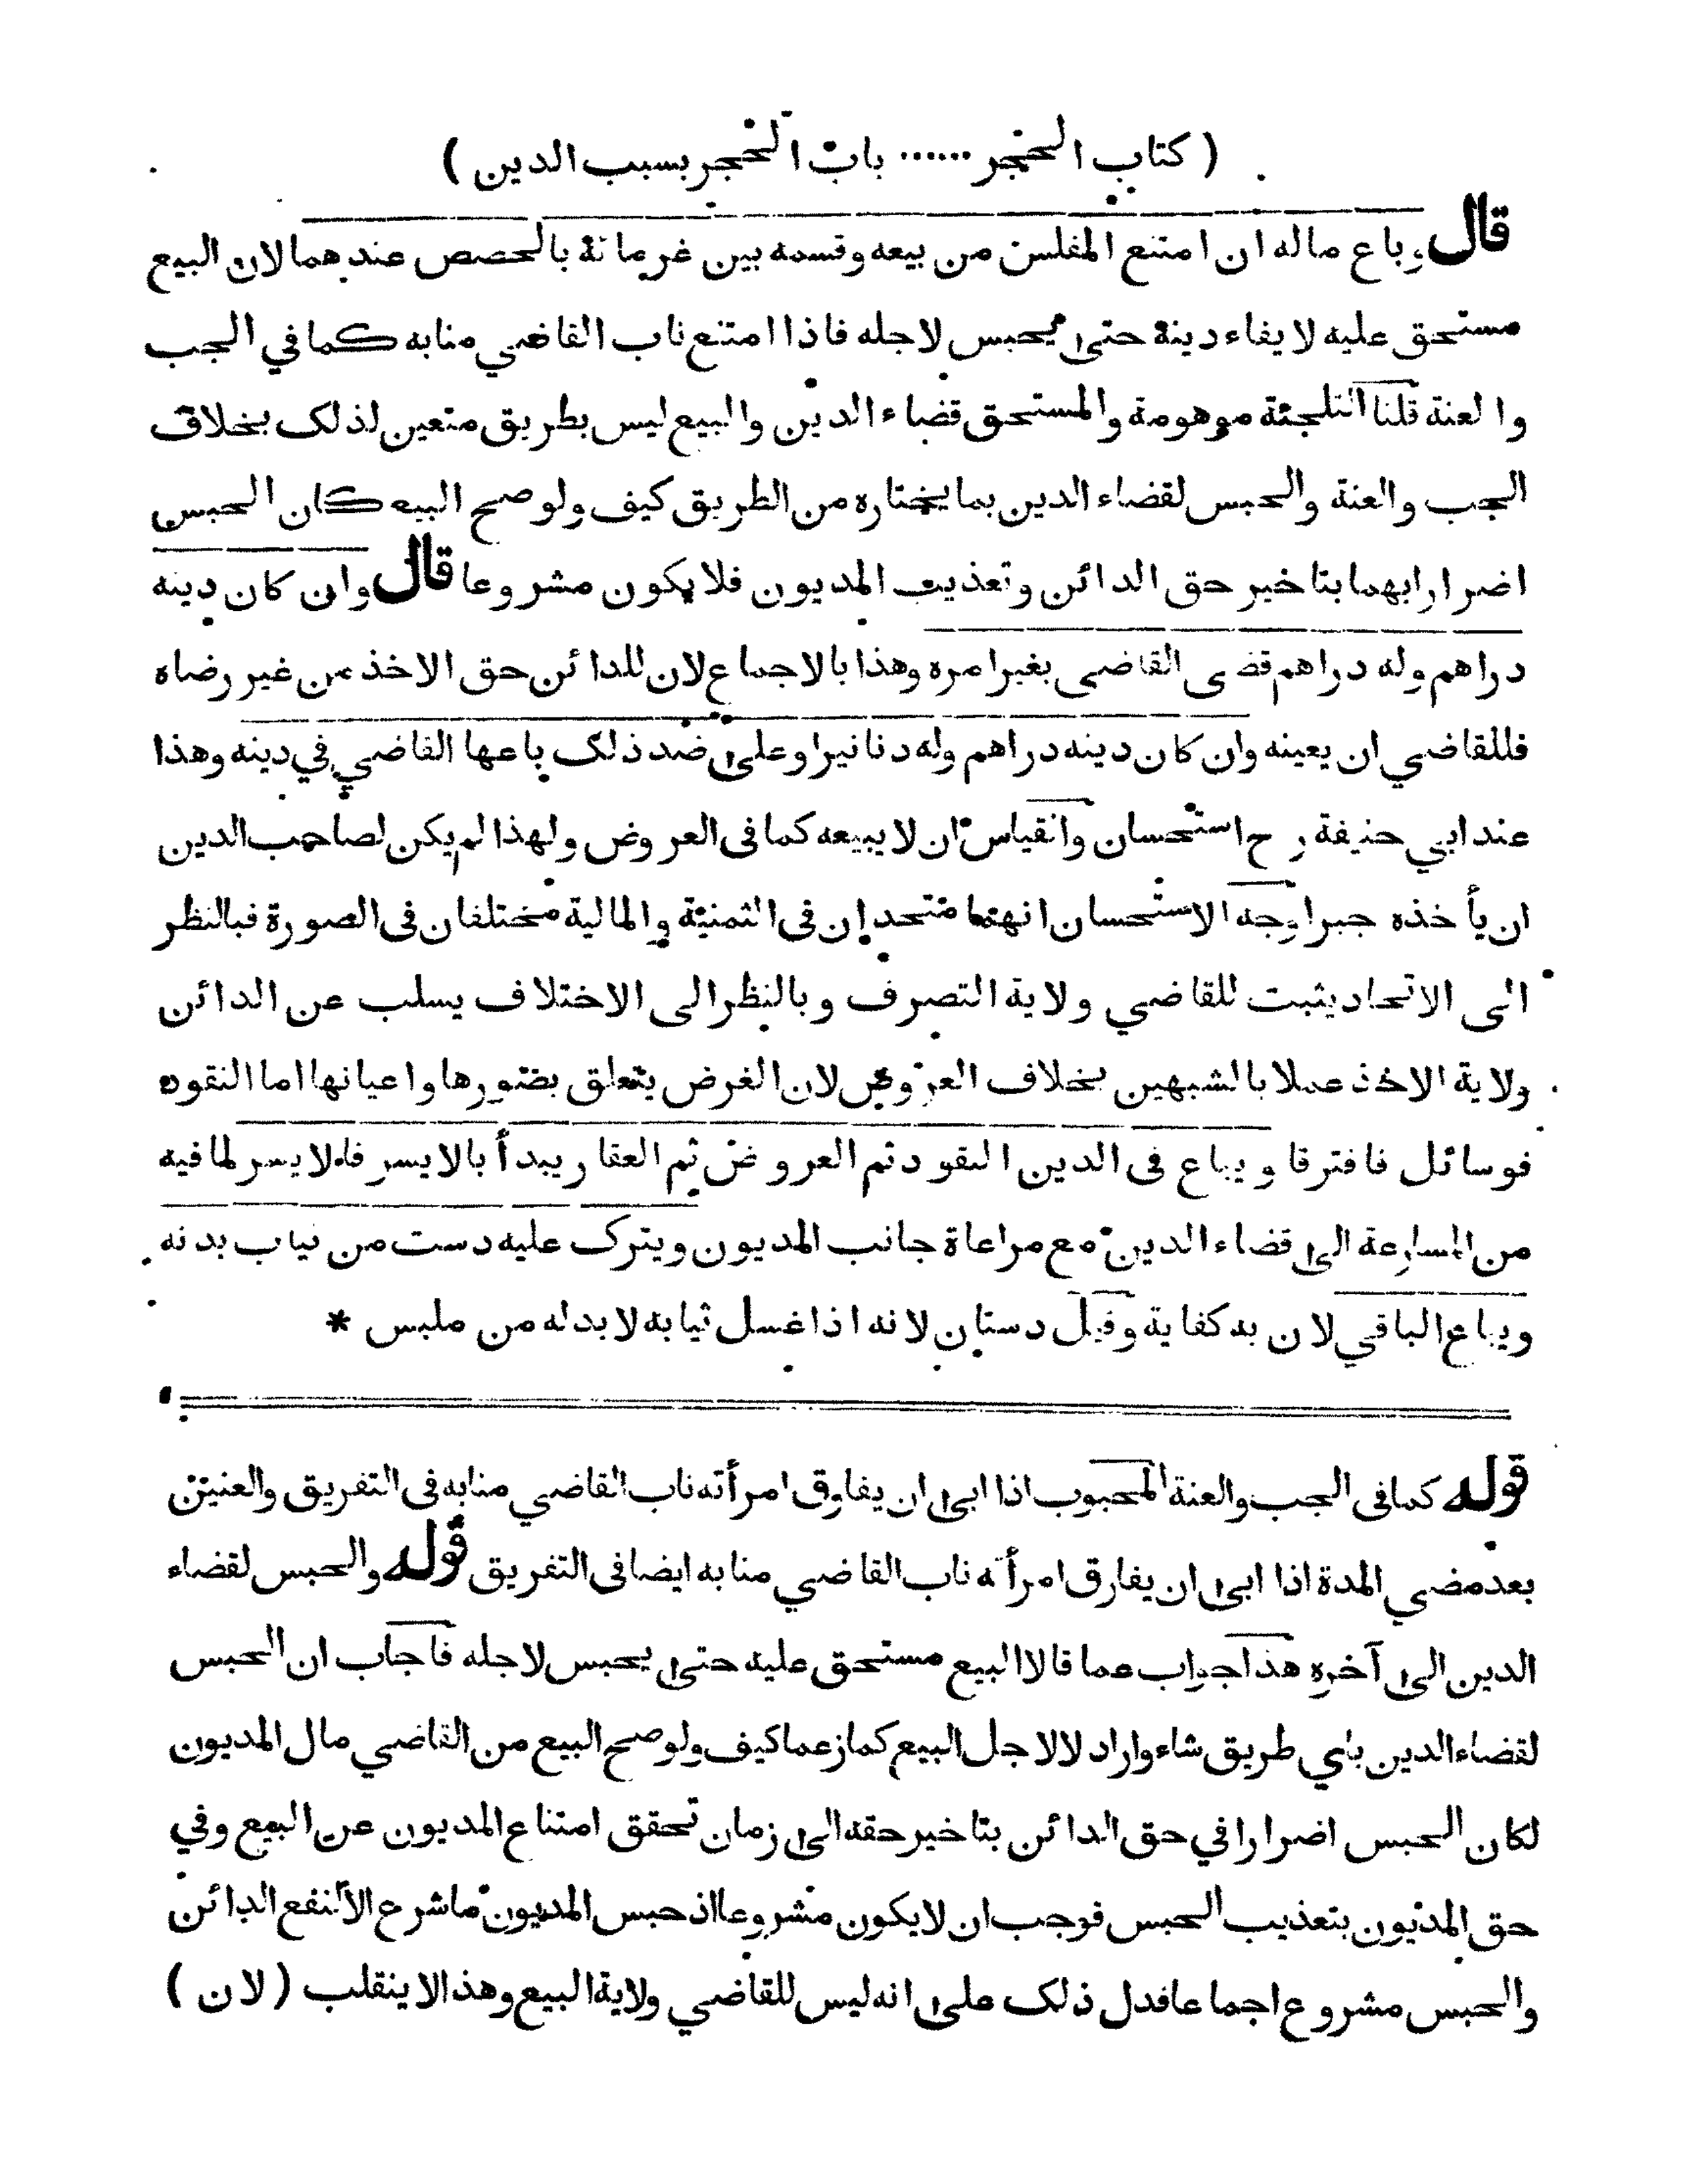 ( كتاب الحجر ...... باب الحجر بسبب الدين )
قال وباع ماله ان امتنع المفلس من بيعه وقسمه بين غرمائه بالحصص عندهما لان البيع
مستحق عليه لايفاء دينه حتى يحبس لاجله فاذا امتنع ناب القاضي منابه كما في الجب
والعنة قلنا التلجئة موهومة والمستحق قضاء الدين والبيع ليس بطريق متعين لذلك بخلاف
الجب والعنة والحبس لقضاء الدين بما يختاره من الطريق كيف ولو صح البيع كان الحبس
اضرارا بهما بتاخير حق الدائن وتعذيب المديون فلا يكون مشروعا قال وان كان دينه
دراهم وله دراهم قضى القاضى بغير امره وهذا بالاجماع لان للدائن حق الاخذ من غير رضاه
فللقاضي ان يعينه وان كان دينه دراهم وله دنانير او على ضد ذلك باعها القاضي في دينه وهذا
عند ابي حنيفة رح استحسان والقياس ان لا يبيعه كما فى العروض ولهذا لم يكن لصاحب الدين
ان يأخذه جبرا وجه الاستحسان انهما متحدان فى الثمنية والمالية مختلفان فى الصورة فبالنظر
الى الاتحاد يثبت للقاضي ولاية التصرف وبالنظر الى الاختلاف يسلب عن الدائن
ولاية الاخذ عملا بالشبهين بخلاف العروض لان الغرض يتعلق بصورها واعيانها اما النقود
فوسائل فافترقا ويباع فى الدين النقود ثم العروض ثم العقار يبدأ بالايسر فالايسر لما فيه
من المسارعة الى قضاء الدين مع مراعاة جانب المديون ويترك عليه دست من ثياب بدنه
ويباع الباقي لان به كفاية وقيل دستان لانه اذا غسل ثيابه لا بد له من ملبس *
قوله كما فى الجب والعنة المجبوب اذا ابى ان يفارق امرأته ناب القاضي منابه فى التفريق والعنين
بعد مضي المدة اذا ابى ان يفارق امرأته ناب القاضي منابه ايضا فى التفريق قوله والحبس لقضاء
الدين الى آخره هذا جواب عما قالا البيع مستحق عليه حتى يحبس لاجله فاجاب ان الحبس
لقضاء الدين باي طريق شاء واراد لا لاجل البيع كما زعما كيف ولو صح البيع من القاضي مال المديون
لكان الحبس اضرارا في حق الدائن بتاخير حقه الى زمان تحقق امتناع المديون عن البيع وفي
حق المديون بتعذيب الحبس فوجب ان لا يكون مشروعا اذ حبس المديون ما شرع الا لنفع الدائن
والحبس مشروع اجماعا فدل ذلك على انه ليس للقاضي ولاية البيع وهذا لا ينقلب ( لان )